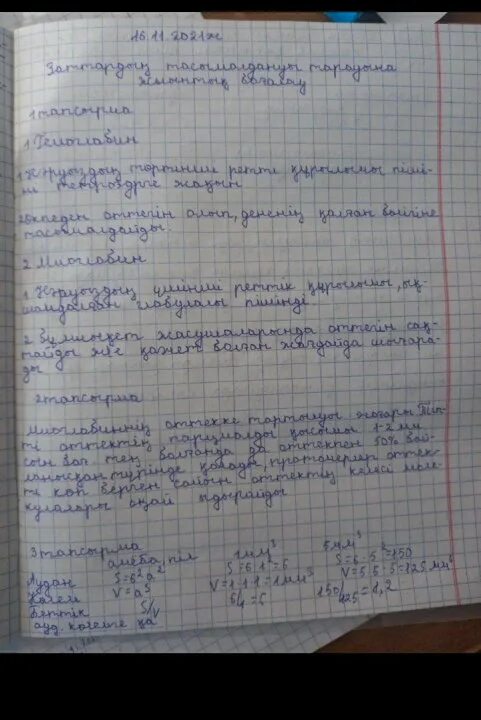 16.11.2021ж
Заттардың тасымалдануы тарауына
жиынтық бағалау
1 тапсырма
1 Гемоглобин
1 Нәруыздың төртінші реттік құрылымы піші-
ні жақын
2 Өкпеден оттегін алып, дененің қалған бөлігіне
тасымалдайды.
2 Миоглобин
1 Нәруыздың үшінші реттік құрылымы, ық-
шамдалған глобулалы пішінді.
2 Бұлшықет жасушаларында оттегін сақ-
тайды және қажет болған жағдайда шығара-
ды
2 тапсырма
Миоглобиннің оттекке тартылуы жоғары Тіп-
ті оттектің парциалды қысымы 1-2 мм
сын бағ тең болғанда да оттекпен 50% бай-
ланысқан түрінде қалады, оттек-
ті көп берген сайын оттектің келесі моле-
кулалары оңай ыдырайды
3 тапсырма
амёба, піл 1мм³ 5мм³
Аудан S=6²a² S=6·1²=6 S=6·5²=150
Көлем V=a³ V=1·1·1=1мм³ V=5·5·5=125мм³
Беттік S/V 6/1=6 150/125=1,2
ауд. көлемге қа